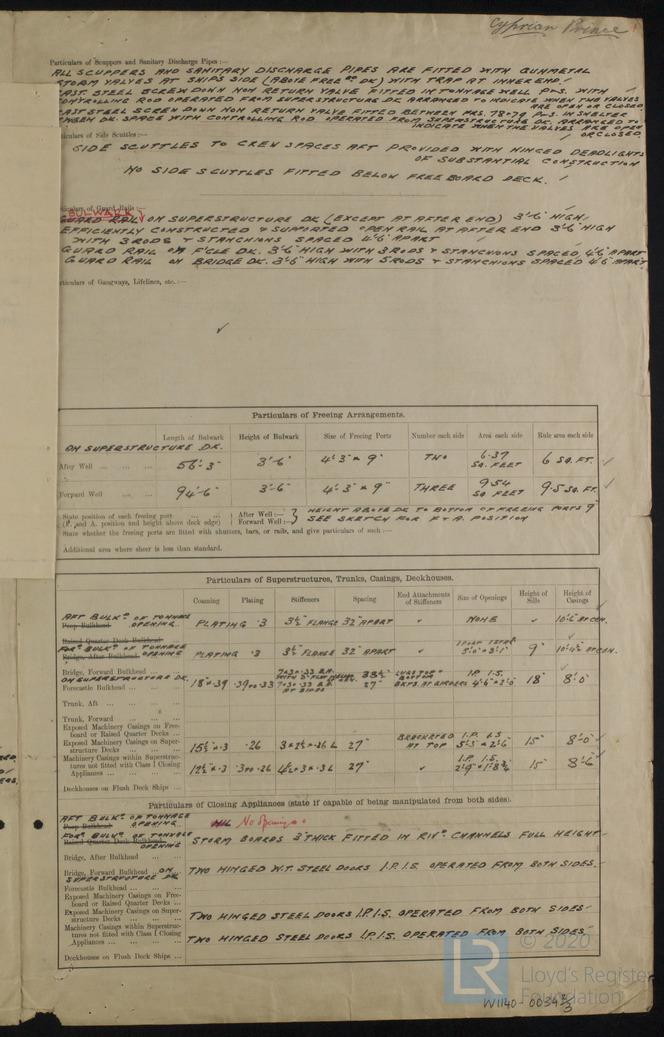 Cyprian Prince
Particulars of Scuppers and Sanitary Discharge Pipes :—
ALL SCUPPERS AND SANITARY DISCHARGE PIPES ARE FITTED WITH GUNMETAL
STORM VALVES AT SHIPS SIDE (ABOVE FREEBD DK) WITH TRAP AT INNER END
CAST STEEL SCREW DOWN NON RETURN VALVE FITTED IN TONNAGE WELL P&S. WITH
CONTROLLING ROD OPERATED FROM SUPERSTRUCTURE DK ARRANGED TO INDICATE WHEN THE VALVES
ARE OPEN OR CLOSED
CAST STEEL SCREW DOWN NON RETURN VALVE FITTED BETWEEN FRS. 78-79 P&S. IN SHELTER
TWEEN DK. SPACE WITH CONTROLLING ROD OPERATED FROM SUPERSTRUCTURE DK. ARRANGED TO
INDICATE WHEN THE VALVES ARE OPEN
OR CLOSED
ticulars of Side Scuttles :—
SIDE SCUTTLES TO CREW SPACES AFT PROVIDED WITH HINGED DEADLIGHTS
OF SUBSTANTIAL CONSTRUCTION
NO SIDE SCUTTLES FITTED BELOW FREEBOARD DECK.
ticulars of Guard Rails :—
BULWARK
GUARD RAIL ON SUPERSTRUCTURE DK (EXCEPT AT AFTER END) 3'-6" HIGH
EFFICIENTLY CONSTRUCTED & SUPPORTED OPEN RAIL AT AFTER END 3'-6" HIGH
WITH 3 RODS & STANCHIONS SPACED 4'-6" APART
GUARD RAIL ON F'CLE DK. 3'-6" HIGH WITH 3 RODS & STANCHIONS SPACED 4'-6" APART
GUARD RAIL ON BRIDGE DK. 3'-6" HIGH WITH 5 RODS & STANCHIONS SPACED 4'-6" APART
rticulars of Gangways, Lifelines, etc. :—
Particulars of Freeing Arrangements.
Length of Bulwark Height of Bulwark Size of Freeing Ports Number each side Area each side Rule area each side
ON SUPERSTRUCTURE DK.
After Well 56'-3" 3'-6" 4'-3" x 9" TWO 6.37 SQ. FEET 6 SQ. FT.
Forward Well 94'-6" 3'-6" 4'-3" x 9" THREE 9.54 SQ FEET 9.5 SQ. FT.
State position of each freeing port After Well :— HEIGHT ABOVE DK TO BOTTOM OF FREEING PORTS 9"
(F. and A. position and height above deck edge) Forward Well :— SEE SKETCH FOR F & A. POSITION
State whether the freeing ports are fitted with shutters, bars, or rails, and give particulars of such :—
Additional area where sheer is less than standard.
Particulars of Superstructures, Trunks, Casings, Deckhouses.
Coaming Plating Stiffeners Spacing End Attachments of Stiffeners Size of Openings Height of Sills Height of Casings
AFT BULKD OF TONNAGE OPENING
Poop Bulkhead PLATING .3 3½" FLANGE 32" APART NONE
Raised Quarter Deck Bulkhead
FORD BULKD OF TONNAGE OPENING
Bridge, After Bulkhead PLATING .3 3½" FLANGE 32" APART 9"
Bridge, Forward Bulkhead
ON SUPERSTRUCTURE DK.
Forecastle Bulkhead 18" x .39 .39 TO .33 27" 18" 8'-0"
Trunk, Aft
Trunk, Forward
Exposed Machinery Casings on Free-
board or Raised Quarter Decks
Exposed Machinery Casings on Super-
structure Decks .26 27" BRACKETED AT TOP 15" 8'-0"
Machinery Casings within Superstruc-
tures not fitted with Class 1 Closing
Appliances 27" 15" 8'-6"
Deckhouses on Flush Deck Ships
Particulars of Closing Appliances (state if capable of being manipulated from both sides).
AFT BULKD OF TONNAGE OPENING.
Poop Bulkhead NIL No Openings
FORD BULKD OF TONNAGE OPENING
Raised Quarter Deck Bulkhead STORM BOARDS 3" THICK FITTED IN RIVD CHANNELS FULL HEIGHT
Bridge, After Bulkhead
Bridge, Forward Bulkhead ON SUPERSTRUCTURE DK TWO HINGED W.T. STEEL DOORS 1.P. 1.S. OPERATED FROM BOTH SIDES.
Forecastle Bulkhead
Exposed Machinery Casings on Free-
board or Raised Quarter Decks
Exposed Machinery Casings on Super-
structure Decks TWO HINGED STEEL DOORS 1.P. 1.S. OPERATED FROM BOTH SIDES
Machinery Casings within Superstruc-
tures not fitted with Class 1 Closing
Appliances TWO HINGED STEEL DOORS 1.P. 1.S. OPERATED FROM BOTH SIDES.
Deckhouses on Flush Deck Ships
LR © 2020
Lloyd's Register
Foundation
W1140-0034 2/3